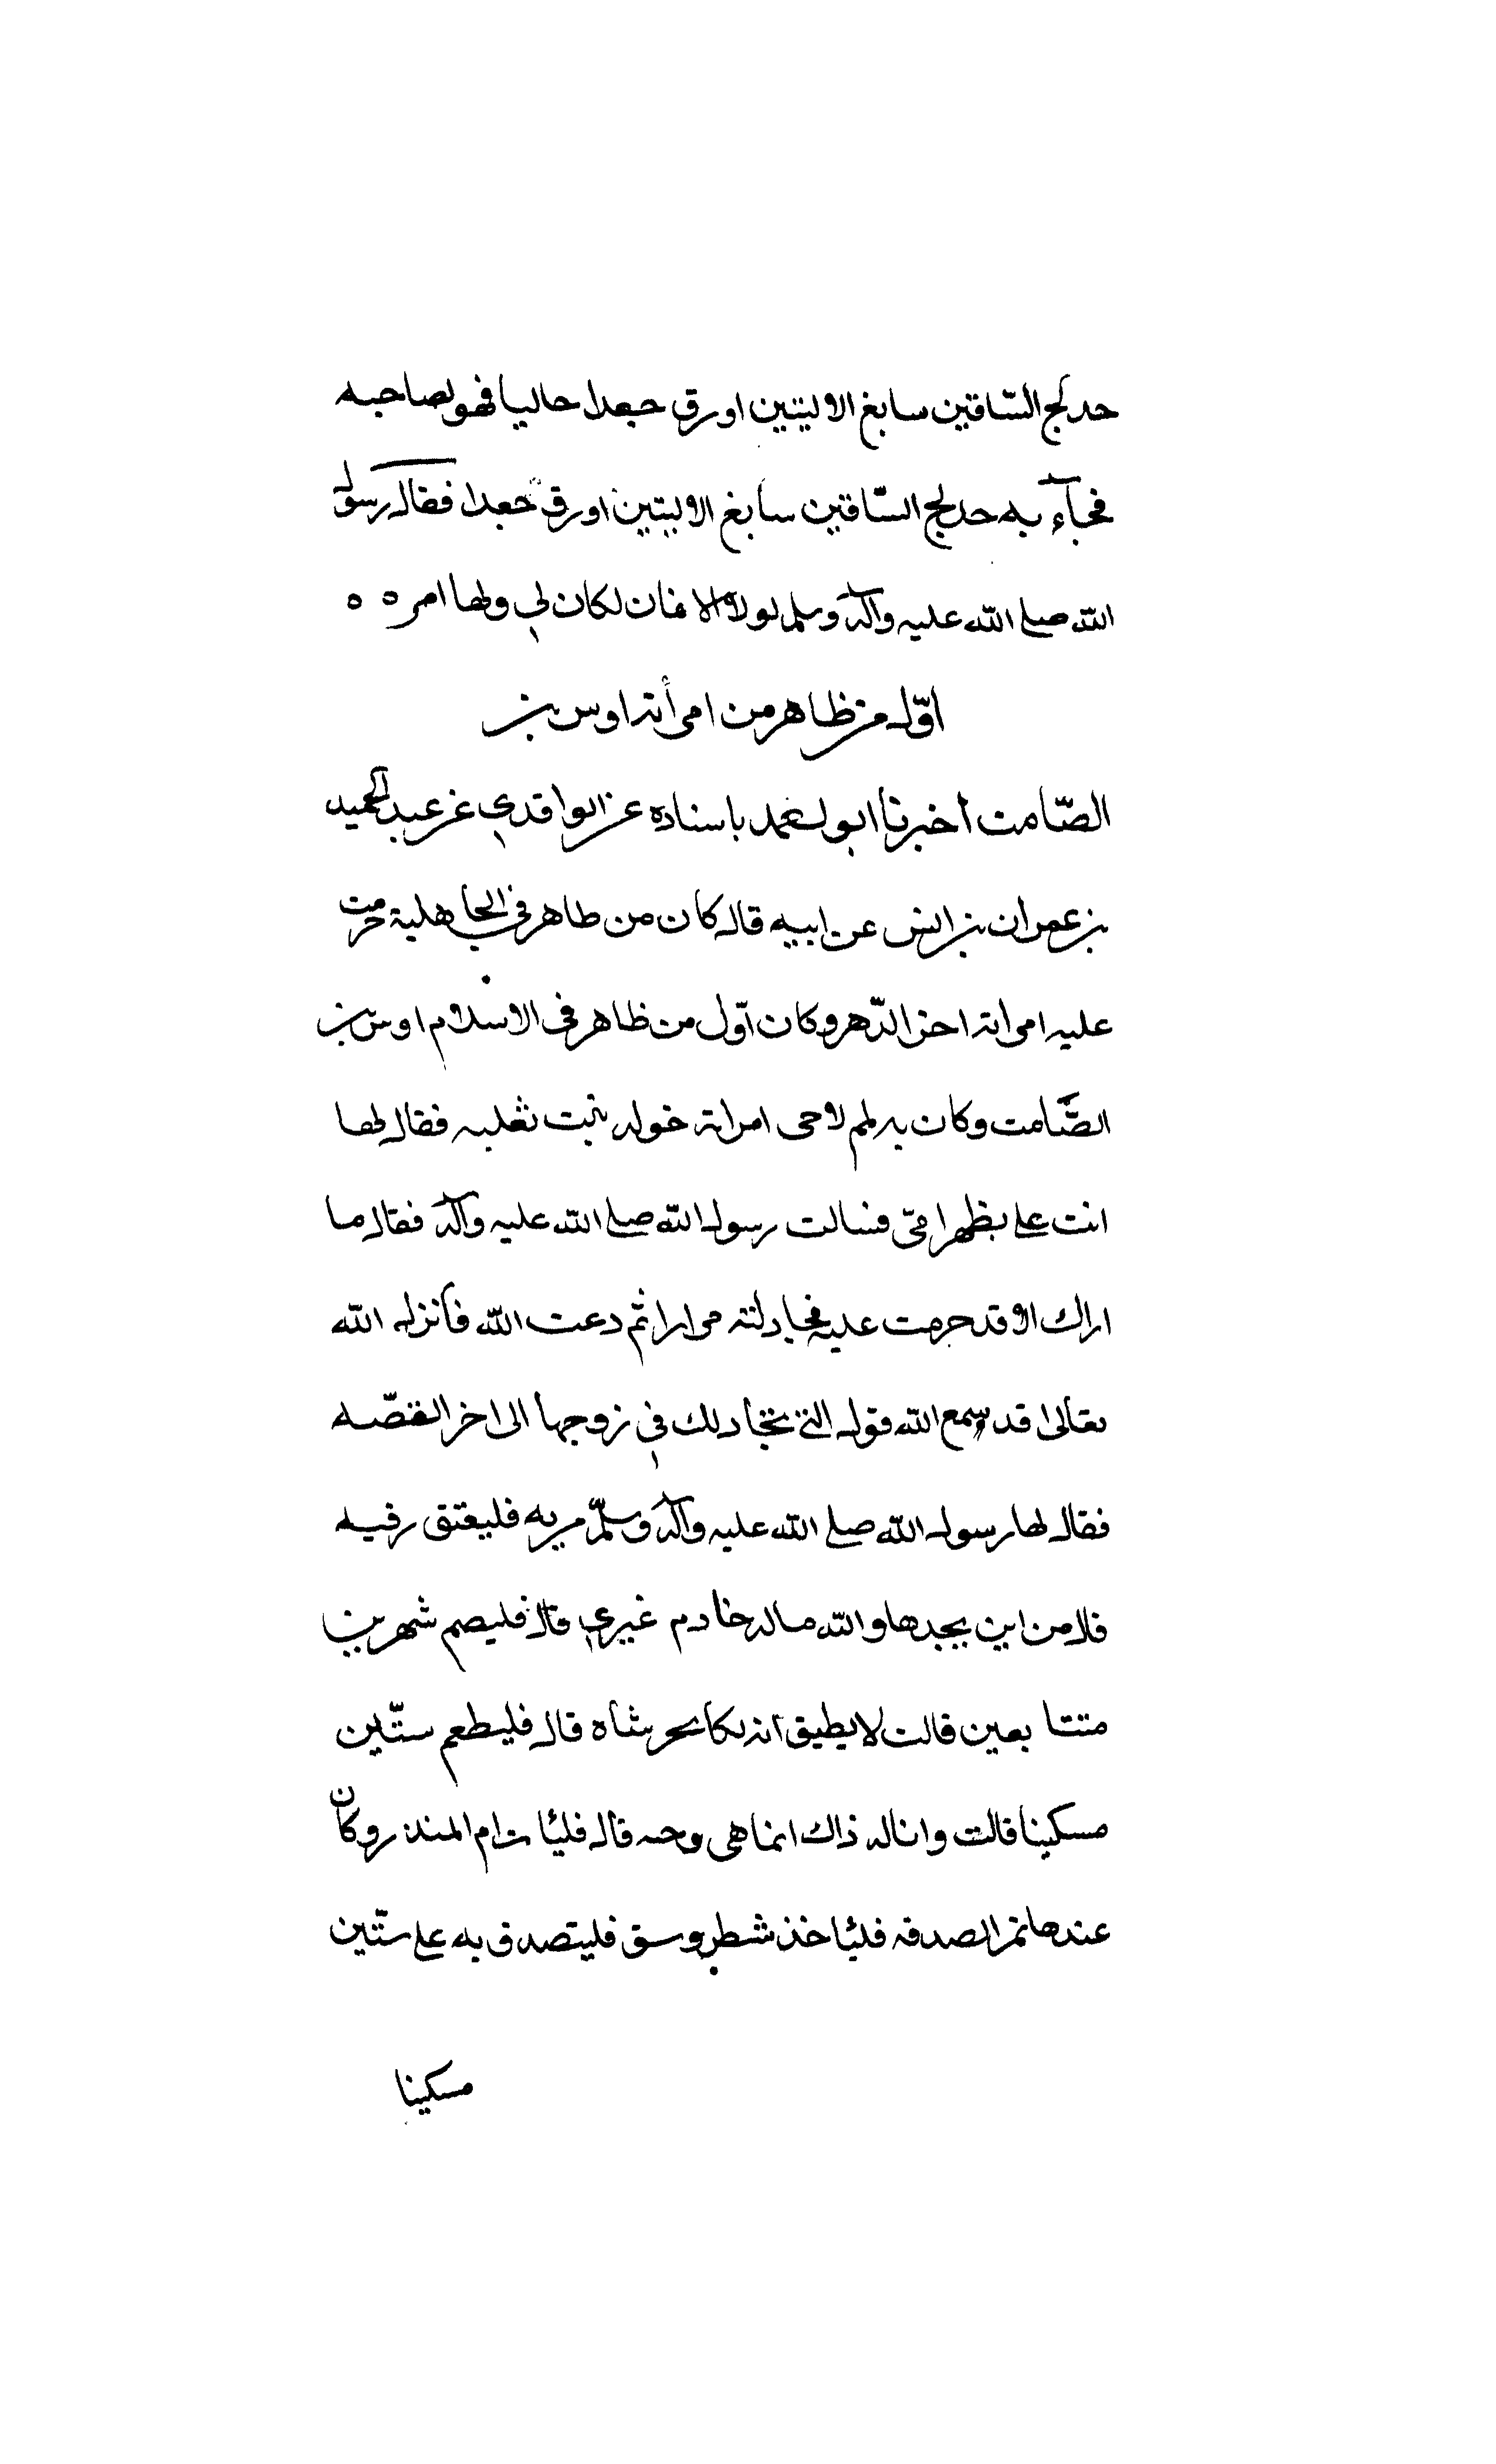 حدلج السّاقين سابغ الاليتين اورق جعدا حاليا فهو لصاحبه
فجآء به حدلج السّاقين سابغ الاليتين اورق جعدا فقال رسول
الله صلى الله عليه وآله وسلم لولا الايمان لكان لي ولها امر ه ه
اوّل من ظاهر من امرأته اوس بن
الصّامت أخبرنا ابو احمد باسناده عن الواقدي عن عبد الحميد
بن عمران بن انس عن ابيه قال كان من ظاهر في الجاهلية حرمت
عليه امراته اخر الدّهر وكان اوّل من ظاهر في الاسلام اوس بن
الصّامت وكان به لمم لاحى امراته خوله بنت ثعلبه فقال لها
انت على بظهر امّي فسالت رسول الله صلى الله عليه وآله فقال ما
اراك الا قد حرمت عليه فجادلته مرارا ثم دعت الله فأنزل الله
تعالى قد سمع الله قول التي تجادلك في زوجها الى اخر القصّه
فقال لها رسول الله صلى الله عليه وآله وسلّم مريه فليعتق رقبه
قلا من اين يجدها والله ماله خادم غيري قال فليصم شهرين
متتا بعين قالت لا يطيق انه شاه قال فليطعم ستّين
مسكينا قالت وانا له ذاك انما هي وجبه قال فليئات ام المنذر وكان
عندها تمر الصدقه فليئاخذ شطر وسق فليتصدق به على ستّين
مسكينا